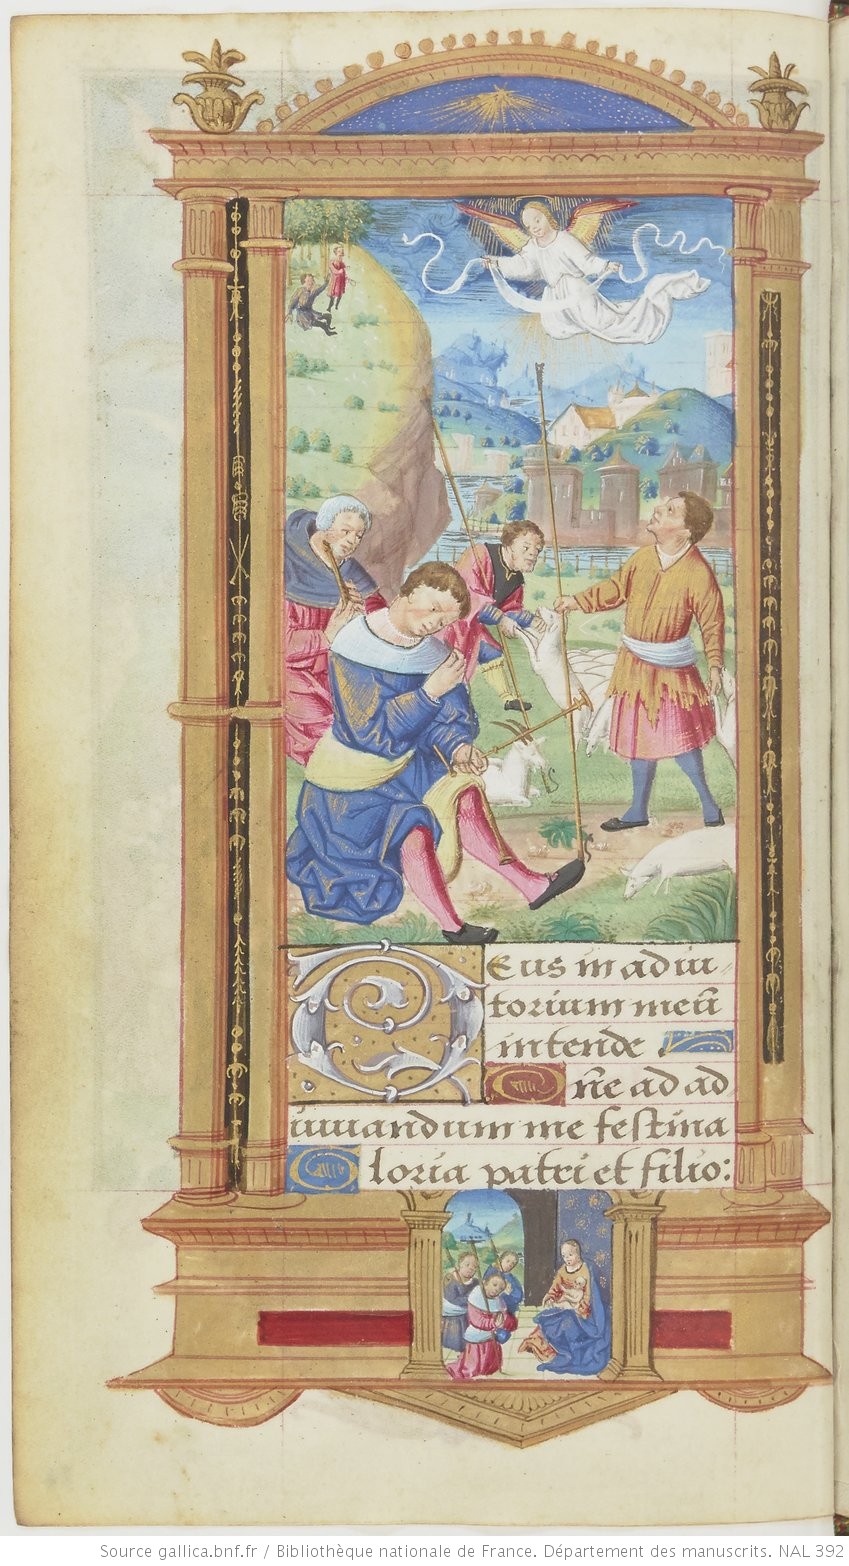 Eus in adiu
torium meū
intende .
Dñe ad ad
iuuandum me festina
Gloria patri et filio:
Source gallica.bnf.fr / Bibliothèque nationale de France. Département des manuscrits. NAL 392